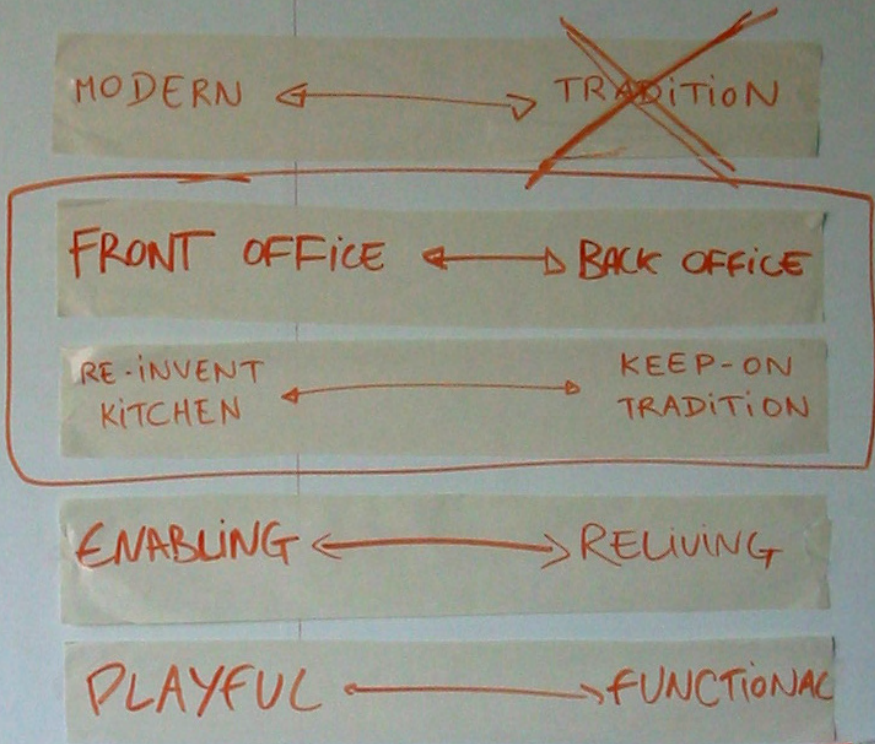 MODERN TRADITION
FRONT OFFICE BACK OFFICE
RE-INVENT KEEP-ON
KITCHEN TRADITION
ENABLING RELIVING
PLAYFUL FUNCTIONAL